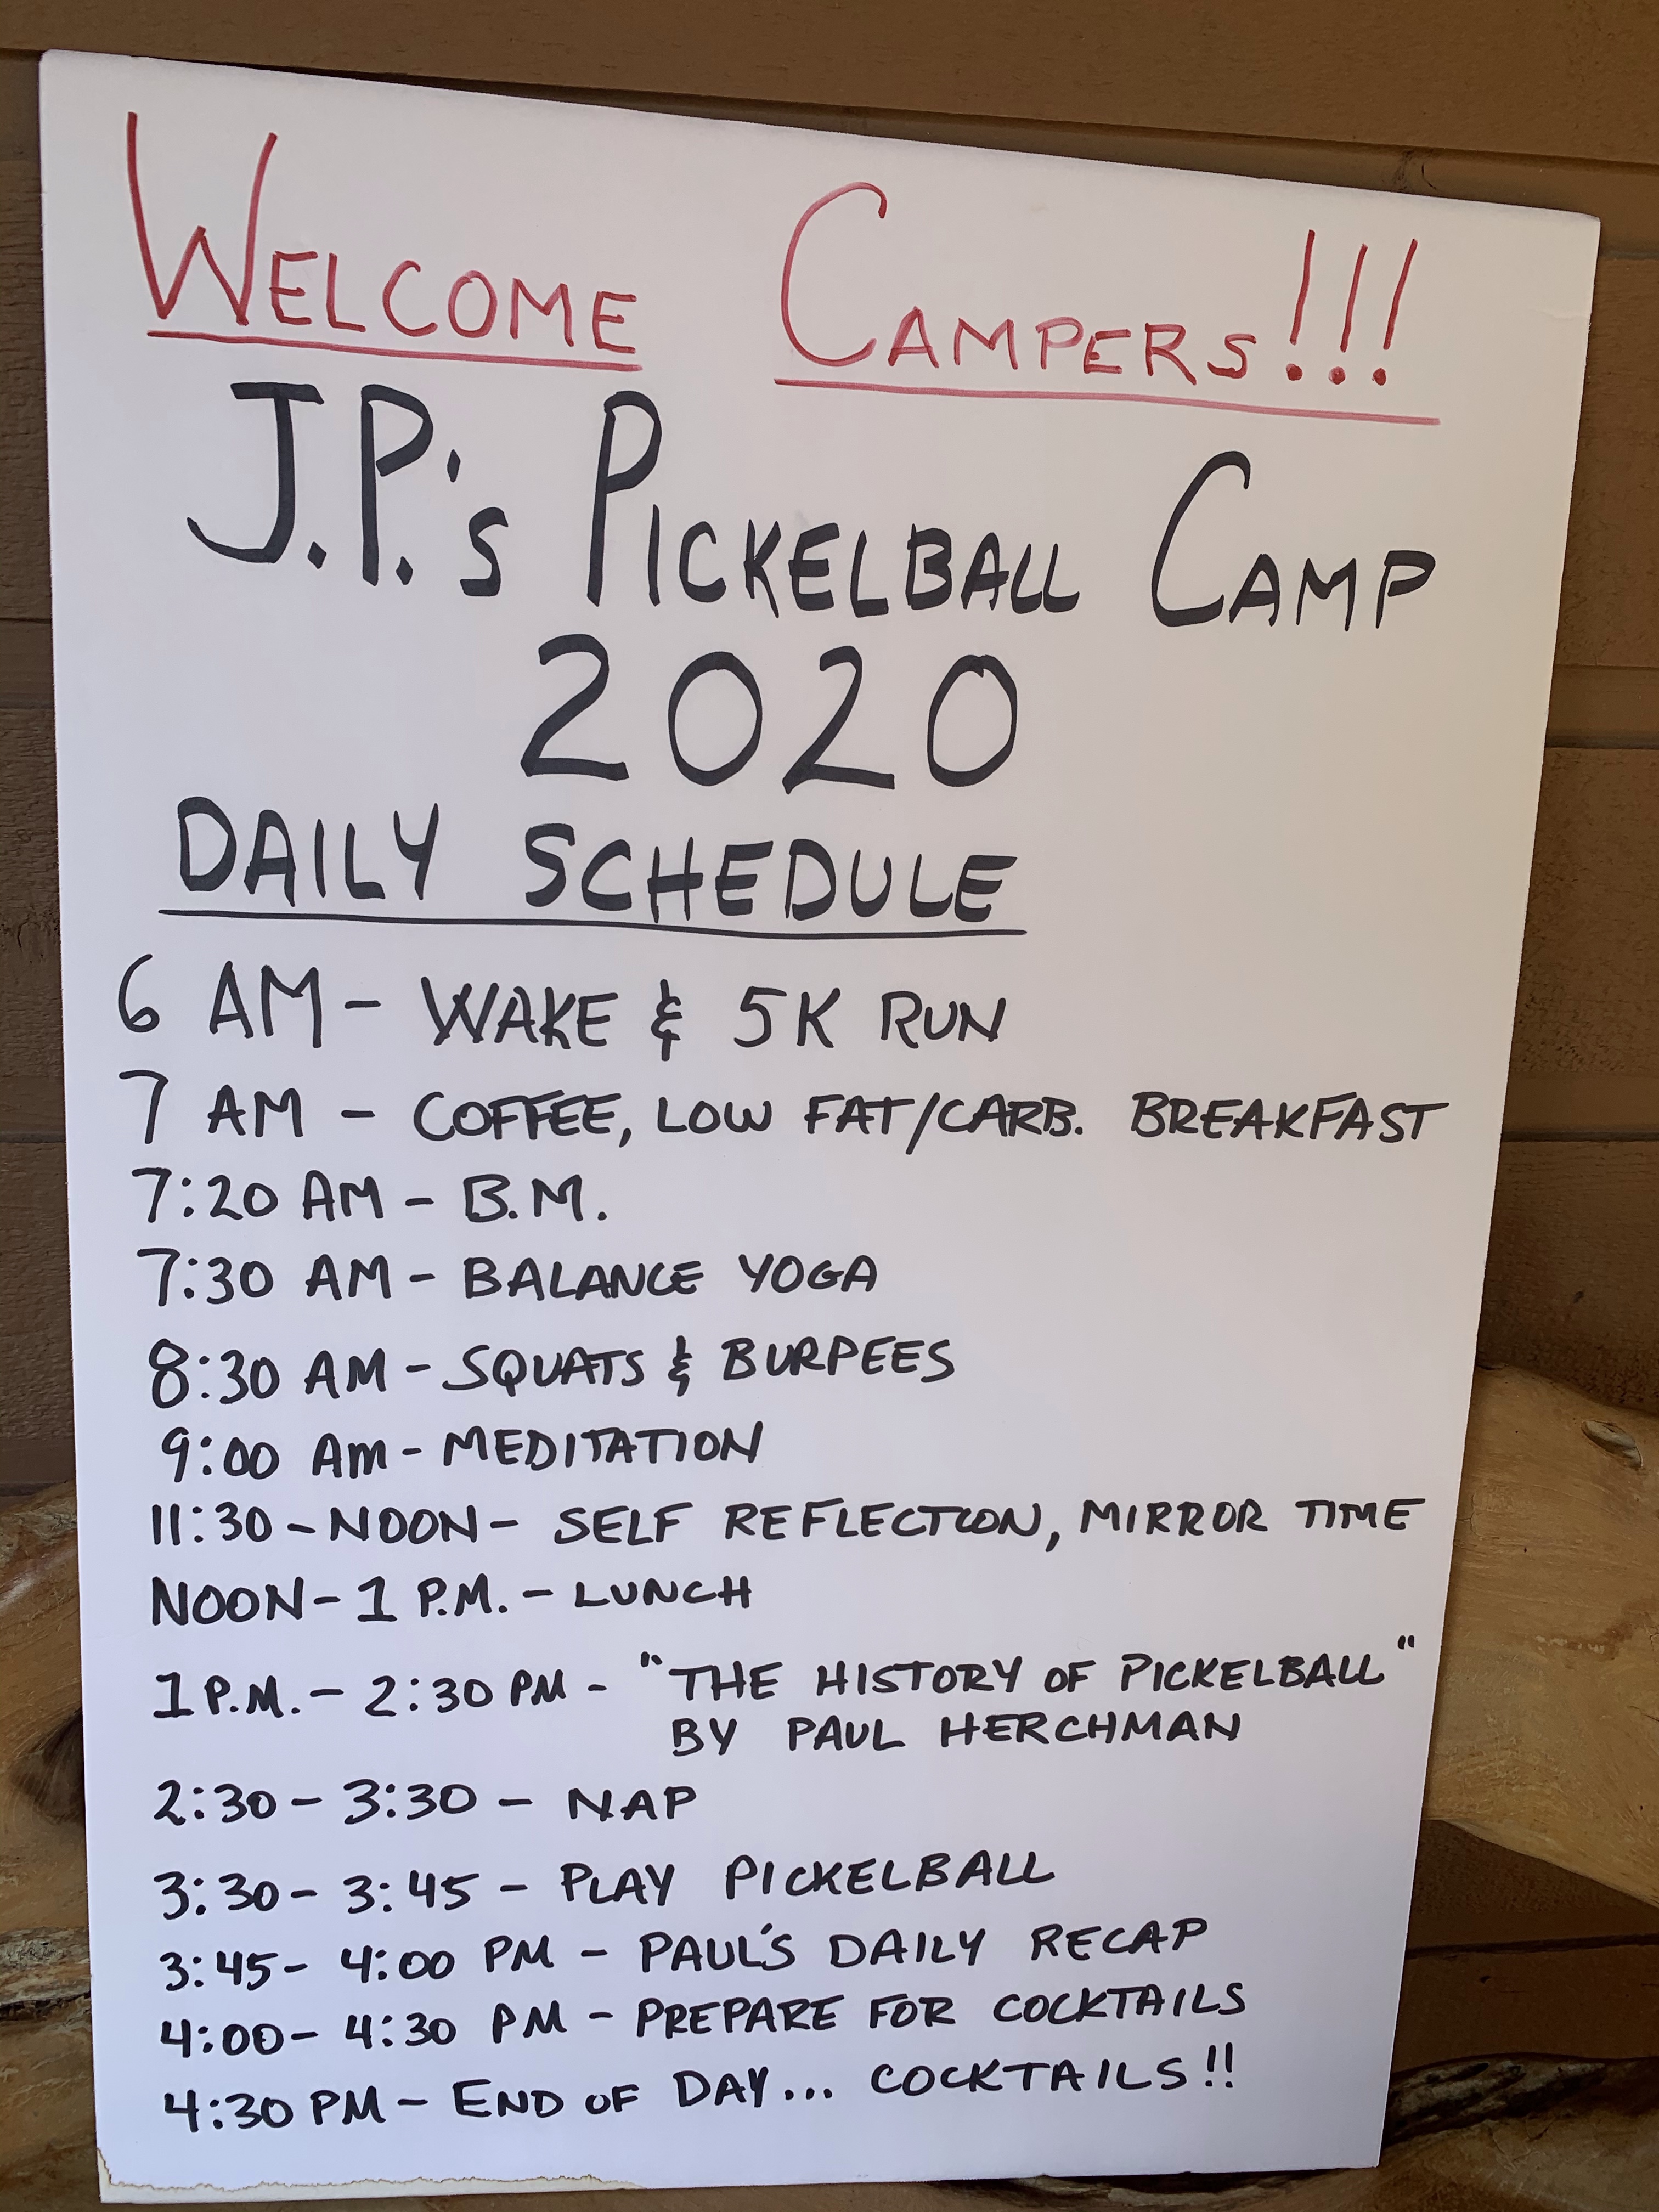 WELCOME CAMPERS!!!
J.P.'s PICKELBALL CAMP
2020
DAILY SCHEDULE
6 AM - WAKE & 5K RUN
7 AM - COFFEE, LOW FAT/CARB. BREAKFAST
7:20 AM - B.M.
7:30 AM - BALANCE YOGA
8:30 AM - SQUATS & BURPEES
9:00 Am - MEDITATION
11:30 - NOON - SELF REFLECTION, MIRROR TIME
NOON - 1 P.M. - LUNCH
1 P.M. - 2:30 PM - "THE HISTORY OF PICKELBALL"
BY PAUL HERCHMAN
2:30 - 3:30 - NAP
3:30 - 3:45 - PLAY PICKELBALL
3:45 - 4:00 PM - PAUL'S DAILY RECAP
4:00 - 4:30 PM - PREPARE FOR COCKTAILS
4:30 PM - END OF DAY... COCKTAILS!!